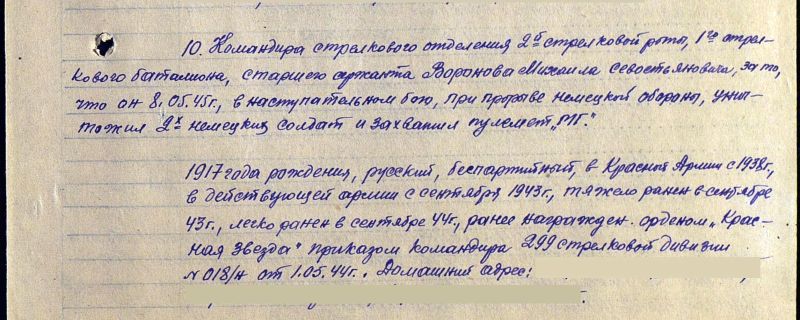 10. Командира стрелкового отделения 2й стрелковой роты, 1го стрел-
кового баталиона, старшего сержанта Воронова Михаила Севостьяновича, за то,
что он 8.05.45г., в наступательном бою, при прорыве немецкой обороны, уни-
тожил 2х немецких солдат и захватил пулемет „МГ."
1917 года рождения, русский, беспартийный, в Красной Армии с 1938г.,
в действующей армии с сентября 1943г., тяжело ранен в сентябре
43г., легко ранен в сентябре 44г., ранее награжден. орденом „Крас-
ная Звезда" приказом командира 299 стрелковой дивизии
№ 018/н от 1.05.44г. Домашний адрес: